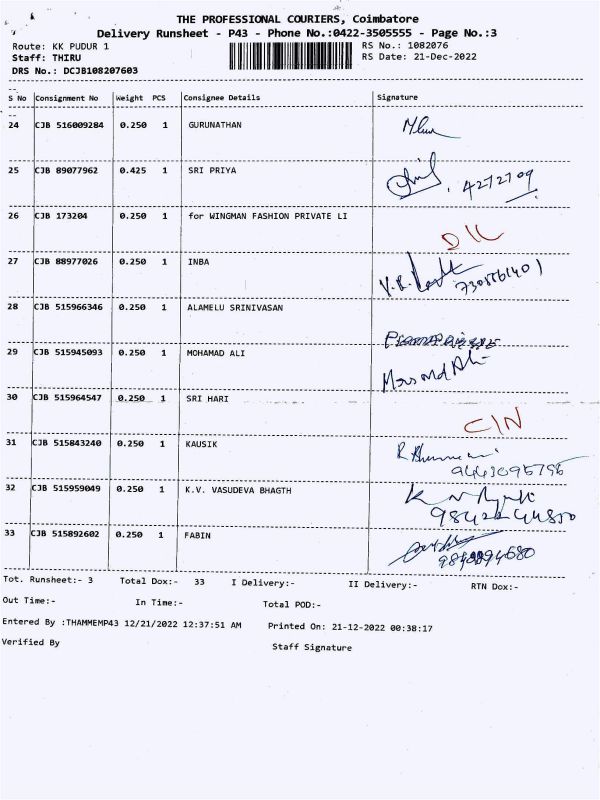 THE PROFESSIONAL COURIERS, Coimbatore
Delivery Runsheet - P43 - Phone No.:0422-3505555 - Page No.:3
Route: KK PUDUR 1 RS No.: 1082076
Staff: THIRU RS Date: 21-Dec-2022
DRS No.: DCJB108207603
S No Consignment No Weight PCS Consignee Details Signature
24 CJB 516009284 0.250 1 GURUNATHAN
25 CJB 89077962 0.425 1 SRI PRIYA
4272709
26 CJB 173204 0.250 1 for WINGMAN FASHION PRIVATE LI
27 CJB 88977026 0.250 1 INBA
28 CJB 515966346 0.250 1 ALAMELU SRINIVASAN
29 CJB 515945093 0.250 1 MOHAMAD ALI
30 CJB 515964547 0.250 1 SRI HARI
CIN
31 CJB 515843240 0.250 1 KAUSIK
32 CJB 515959049 0.250 1 K.V. VASUDEVA BHAGTH
33 CJB 515892602 0.250 1 FABIN
Tot. Runsheet:- 3 Total Dox:- 33 I Delivery:- II Delivery:- RTN Dox:-
Out Time:- In Time:- Total POD:-
Entered By :THAMMEMP43 12/21/2022 12:37:51 AM Printed On: 21-12-2022 00:38:17
Verified By Staff Signature